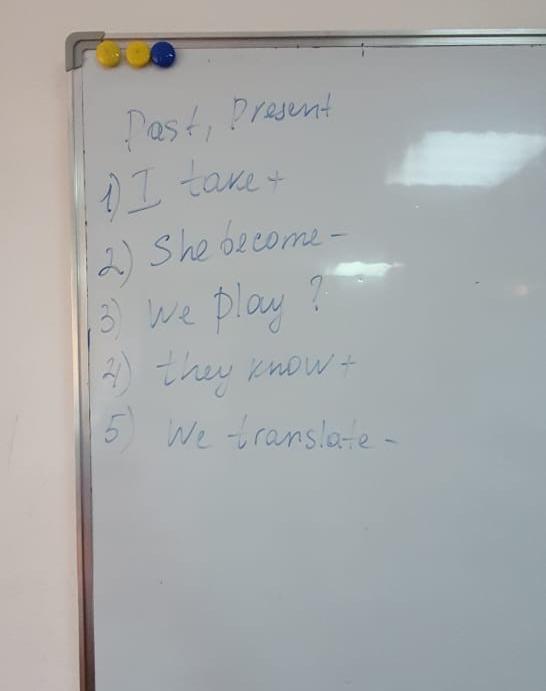 Past, Present
1) I take +
2) She become -
3) We play ?
4) they know +
5) We translate -